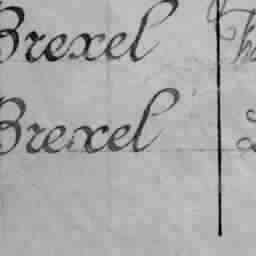 Brexel
Brexel